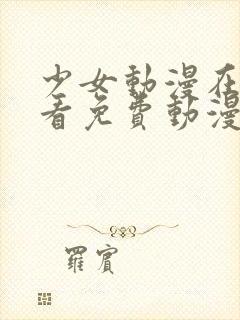 少女動漫在
看免費動漫
羅賓